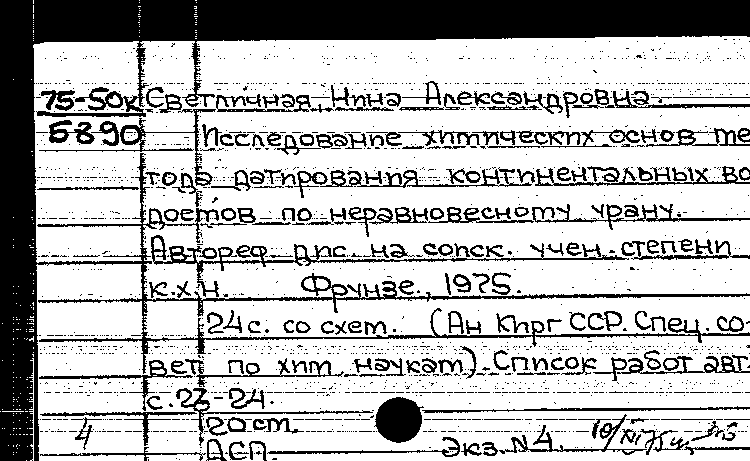 75-50к Светличная, Нина Александровна.
5890 Исследование химических основ ме
тода датирования континентальных во
доемов по неравновесному урану.
Автореф. дис. на соиск. учен. степени
к.х.н. Фрунзе, 1975.
24с. со схем. (Ан Кирг ССР. Спец. со-
вет по хим. наукам). Список работ авт.
с. 23-24.
4 20 см.
ДСП. Экз. N4. 10/XI 75